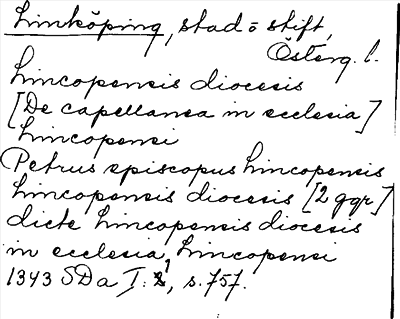 Linköping, stad o stift,
Österg. l.
Lincopensis diocesis
[De capellanea in ecclesia]
Lincopensi
Petrus episcopus Lincopensis
Lincopensis diocesis [2 ggr]
dicte Lincopensis diocesis
in ecclesia Lincopensi
1343 SDa I:1, s. 757.